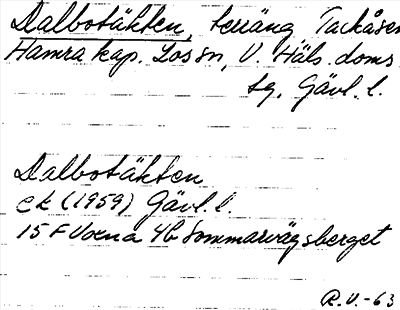 Dalbotäkten, terräng Tackåsen
Hamra kap. Los sn, V. Häls. doms
sg, Gävl. l.
Dalbotäkten
ek (1959) Gävl. l.
15 F Voxna 4b Sommarvägsberget
R.V.-63